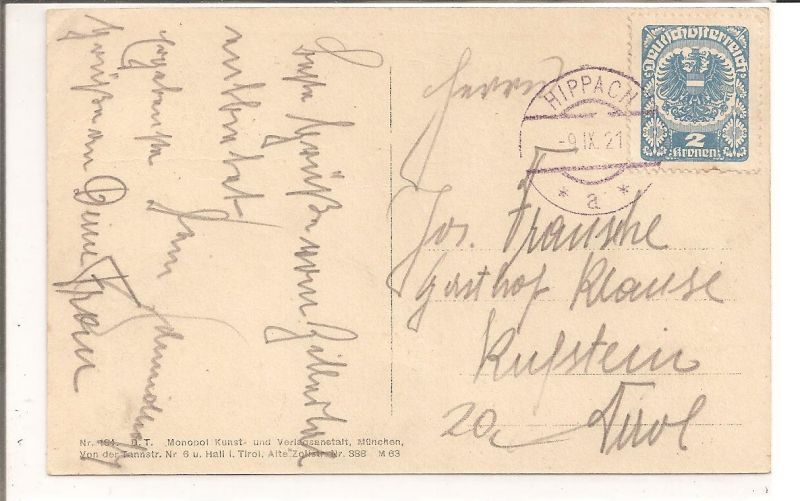 beste Grüße vom Zillertal
entbietet
Grüße an Deine Frau
Herrn
HIPPACH
-9.IX.21
* a *
Deutschösterreich
2
Kronen
Jos. Frausche
Gasthof Klause
Kufstein
Tirol
Nr. 184. D. T. Monopol Kunst- und Verlagsanstalt, München,
Von der Tannstr. Nr 6 u. Hall i. Tirol, Alte Zollstr. Nr. 388 M 63